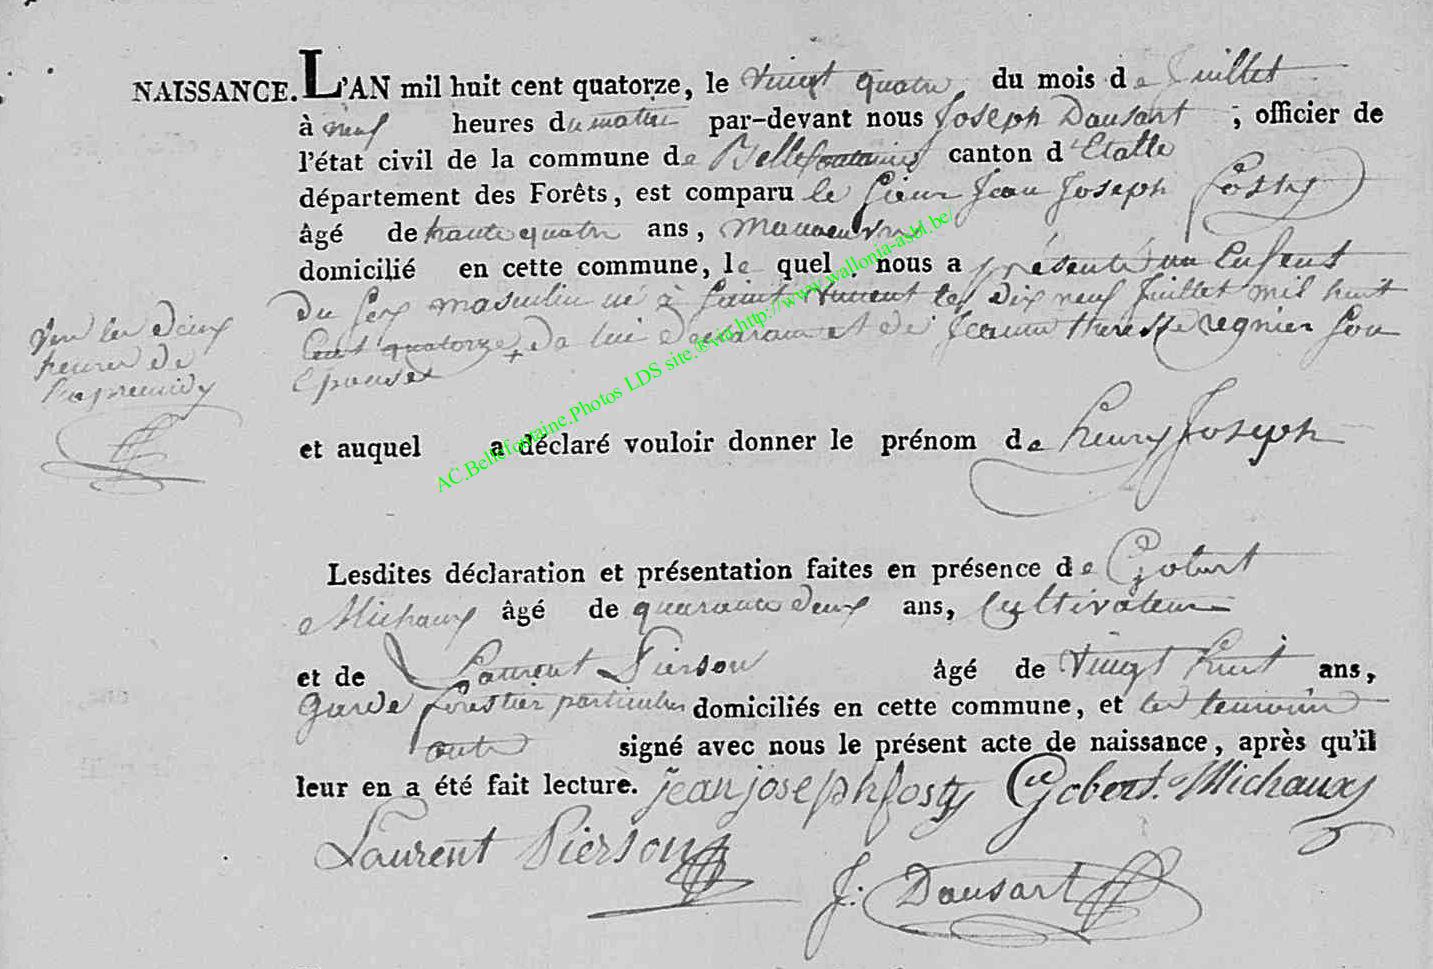 NAISSANCE. L'AN mil huit cent quatorze, le vingt quatre du mois de Juillet
à neuf heures du matin par-devant nous Joseph Dausart, officier de
l'état civil de la commune de Bellefontaine canton d'Etalle
département des Forêts, est comparu le sieur Jean Joseph Fosty
âgé de trente quatre ans, manoeuvre
domicilié en cette commune, le quel nous a présenté un Enfant
du sexe masculin né à saint vincent le dix neuf Juillet mil huit
cent quatorze + de lui déclarant et de Jeanne thérèse regnier son
épouse
+ les deux
heures de
l'apremidy
et auquel a déclaré vouloir donner le prénom de henry Joseph
Lesdites déclaration et présentation faites en présence de Gobert
Michaux âgé de quarante deux ans, Cultivateur
et de Laurent Pierson âgé de vingt huit ans,
Garde forestier particulier domiciliés en cette commune, et les temoins
ont signé avec nous le présent acte de naissance, après qu'il
leur en a été fait lecture. jean joseph fosty Gobert Michaux
Laurent Pierson
J. Dausart
AC.Bellefontaine.Photos LDS site ©via http://www.wallonia-asbl.be/